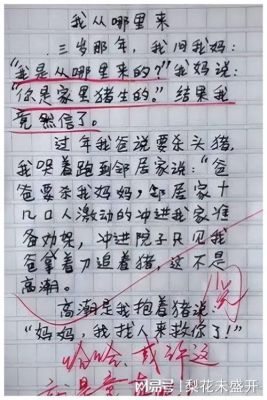 我从哪里来
三岁那年，我问我妈：
“我是从哪里来的？”我妈说：
“你是家里猪生的。”结果我
竟然信了。
过年我爸说要杀头猪，
我哭着跑到邻居家说：“爸
爸要杀我妈妈，邻居家十
几口人激动的冲进我家准
备劝架，冲进院子只见我
爸拿着刀追着猪，这不是
高潮。
高潮是我抱着猪说：
“妈妈，我找人来救你了！”
阅
哈哈，或许这
就是
搜狐号@梨花未盛开